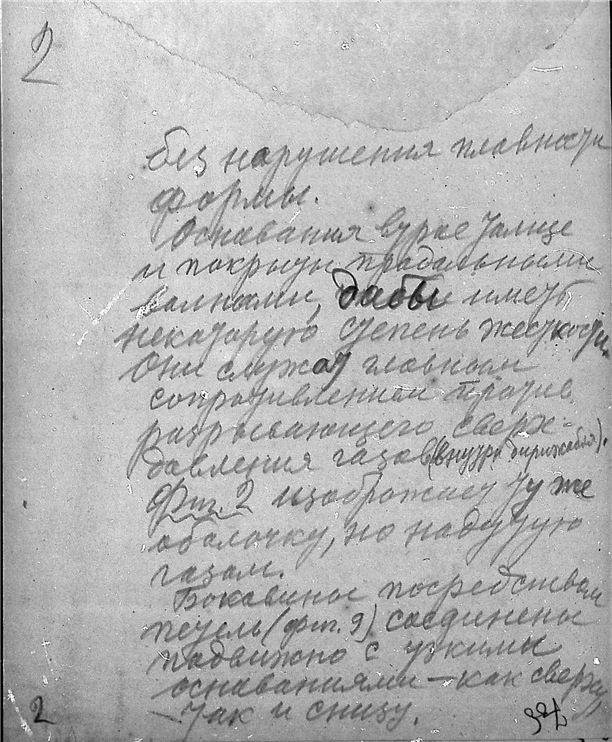 2
без нарушения плавности
формы.
Основания втрое толще
и покрыты продольными
волнами, дабы иметь
некоторую степень жесткости.
Они служат главным
сопротивлением против
разрывающего сверх-
давления газов (внутри дирижабля).
Фиг. 2 изображает ту же
оболочку, но надутую
газом.
Боковины посредством
петель (фиг. 9) соединены
подвижно с узкими
основаниями – как сверху,
так и снизу.
2